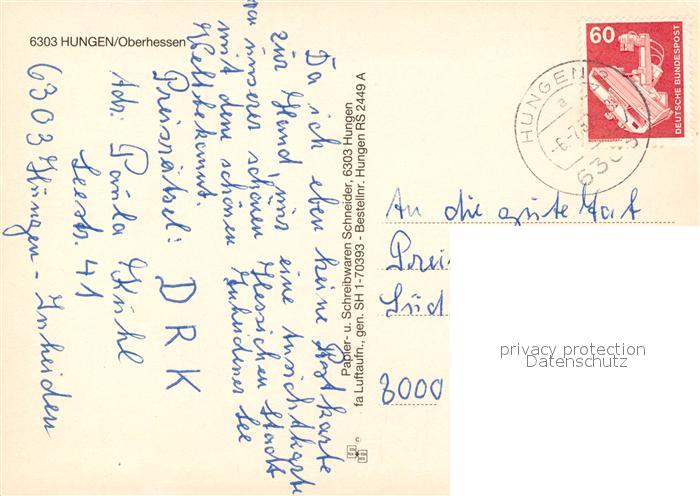 6303 HUNGEN/Oberhessen
Da ich eben keine Postkarte
zur Hand, nur eine Ansichtskarte
von unserer schönen Hessischen Stadt
mit dem schönen Inheidener See
Weltbekannt.
Preisrätsel: DRK
Abs. Paula Kühl
Seestr. 41
6303 Hungen - Inheiden
Papier- u. Schreibwaren Schneider, 6303 Hungen
fa Luftaufn., gen. SH 1-70393 - Bestellnr. Hungen RS 2449 A
©
60
DEUTSCHE BUNDESPOST
HUNGEN
a
6303
An die gute Tat
Prei
Süd
8000
privacy protection
Datenschutz